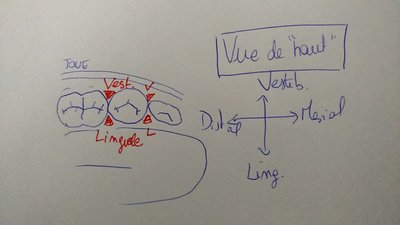 Vue de "haut"
JOUE
Vest. V
Lingale L
Vestib.
Distal Mesial
Ling.